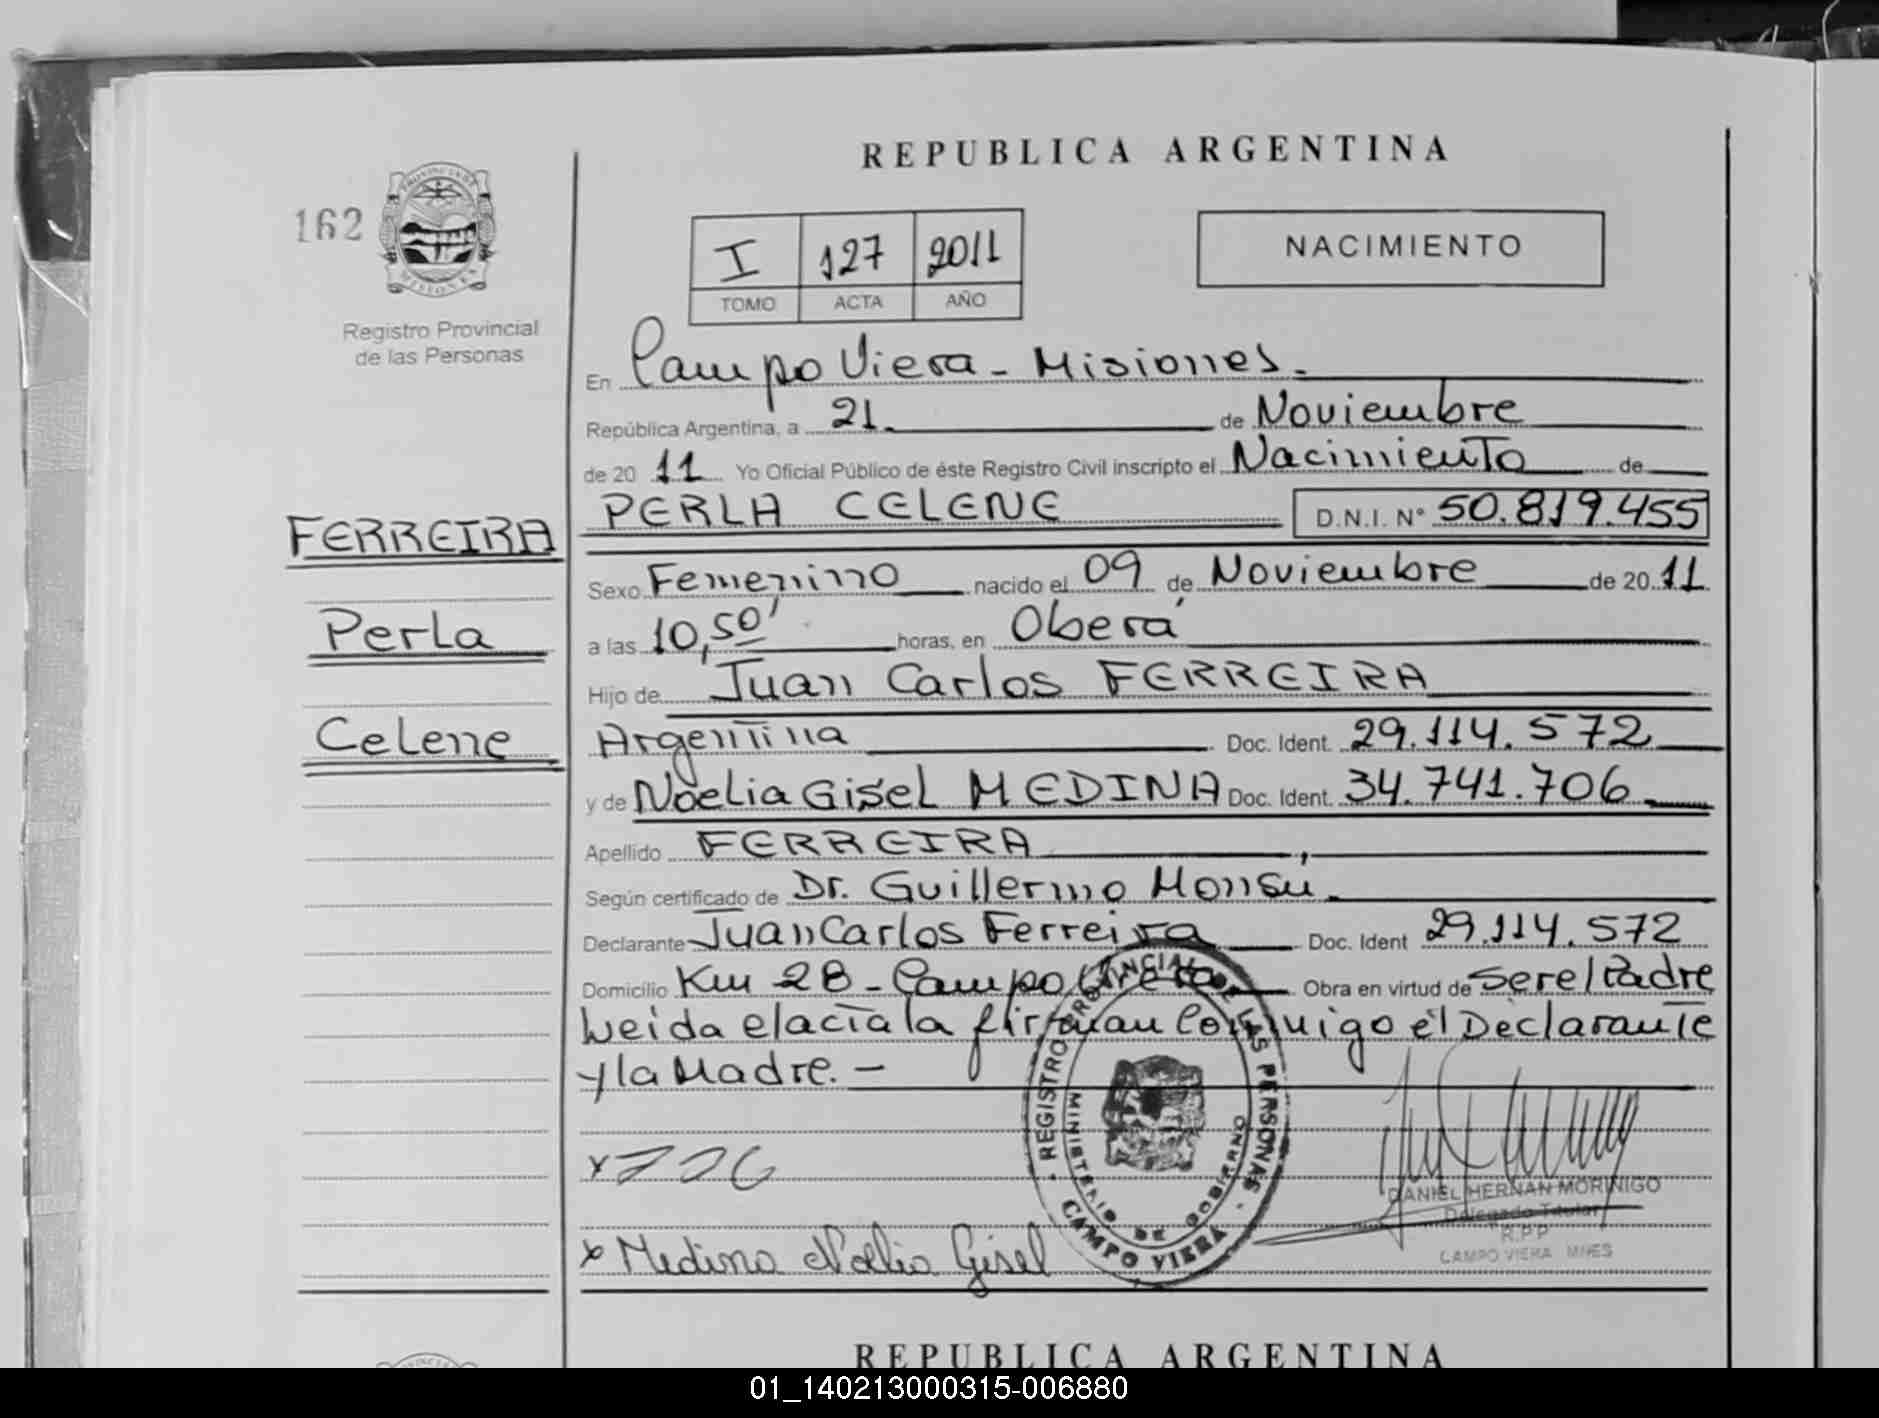 REPUBLICA ARGENTINA
162
PROVINCIA DE MISIONES
Registro Provincial
de las Personas
I 127 2011
TOMO ACTA AÑO
NACIMIENTO
En Campo Viera - Misiones.
República Argentina, a 21. de Noviembre
de 20 11 Yo Oficial Público de éste Registro Civil inscripto el Nacimiento de
PERLA CELENE D.N.I. N° 50.819.455
FERREIRA
Perla
Celene
Sexo Femenino nacido el 09 de Noviembre de 20 11
a las 10,50' horas, en Oberá
Hijo de Juan Carlos FERREIRA
Argentina Doc. Ident. 29.114.572
y de Noelia Gisel MEDINA Doc. Ident. 34.741.706
Apellido FERREIRA
Según certificado de Dr. Guillermo Monsú.
Declarante Juan Carlos Ferreira Doc. Ident 29.114.572
Domicilio Km 28 - Campo Viera Obra en virtud de ser el Padre
Leída el acta la firman Conmigo el Declarante
y la Madre. -
REGISTRO PROVINCIAL DE LAS PERSONAS
MINISTERIO DE GOBIERNO
CAMPO VIERA
x Medina Noelia Gisel
DANIEL HERNAN MORINIGO
Delegado Titular
R.P.P
CAMPO VIERA MNES
REPUBLICA ARGENTINA
01_140213000315-006880